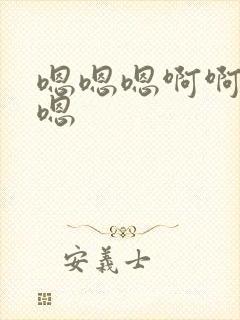 嗯嗯嗯啊啊
嗯
安義士